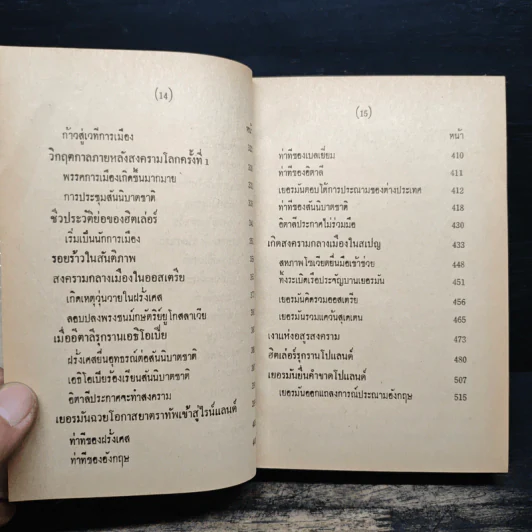 (14)
ก้าวสู่เวทีการเมือง
วิกฤตกาลภายหลังสงครามโลกครั้งที่ 1
พรรคการเมืองเกิดขึ้นมากมาย
การประชุมสันนิบาตชาติ
ชีวประวัติย่อของฮิตเล่อร์
เริ่มเป็นนักการเมือง
รอยร้าวในสันติภาพ
สงครามกลางเมืองในออสเตรีย
เกิดเหตุวุ่นวายในฝรั่งเศส
ลอบปลงพระชนม์กษัตริย์ยูโกสลาเวีย
เมื่ออิตาลีรุกรานเอธิโอเปีย
ฝรั่งเศสยื่นอุทธรณ์ต่อสันนิบาตชาติ
เอธิโอเปียร้องเรียนสันนิบาตชาติ
อิตาลีประกาศจะทำสงคราม
เยอรมันฉวยโอกาสยาตราทัพเข้าสู่ไรน์แลนด์
ท่าทีของฝรั่งเศส
ท่าทีของอังกฤษ
(15)
หน้า
ท่าทีของเบลเยี่ยม 410
ท่าทีของอิตาลี 411
เยอรมันตอบโต้การประณามของต่างประเทศ 412
ท่าทีของสันนิบาตชาติ 418
อิตาลีประกาศไม่ร่วมมือ 430
เกิดสงครามกลางเมืองในสเปญ 433
สหภาพโซเวียตยื่นมือเข้าช่วย 448
ทิ้งระเบิดเรือประจัญบานเยอรมัน 451
เยอรมันคิดรวมออสเตรีย 456
เยอรมันรวมแคว้นสุเดเตน 465
เงาแห่งอสุรสงคราม 473
ฮิตเล่อร์รุกรานโปแลนด์ 480
เยอรมันยื่นคำขาดโปแลนด์ 507
เยอรมันออกแถลงการณ์ประณามอังกฤษ 515